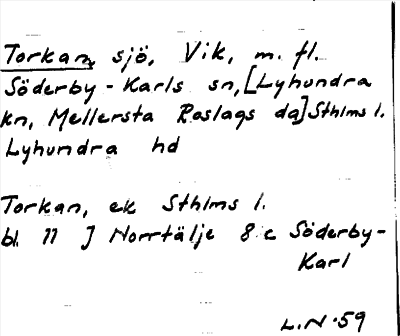 Torkan, sjö, Vik, m. fl.
Söderby-Karls sn, [Lyhundra
kn, Mellersta Roslags dg] Sthlms l.
Lyhundra hd
Torkan, ek Sthlms l.
bl. 11 J Norrtälje 8 c Söderby-
Karl
L.N.59